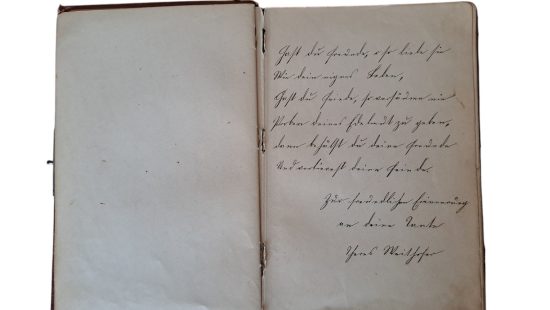 Hast du Freunde, so liebe sie
Wie dein eignes Leben,
Hast du Feinde, so versäume nie
Proben deines Edelmut zu geben,
dann behältst du deine Freunde
Und verlierest deine Feinde.
Zur freundlichen Erinnerung
an deine Tante
Theres Weithofer